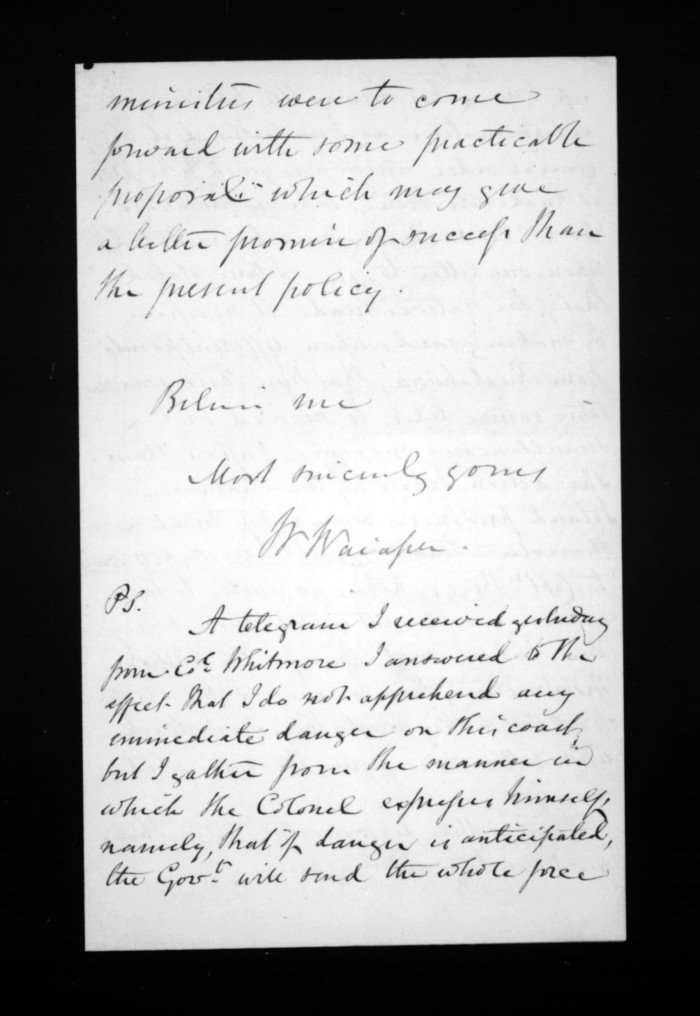 ministers were to come
forward with some practicable
proposals which may give
a better promise of success than
the present policy.
Believe me
Most sincerely yours
W Waiapu.
P.S.
A telegram I received yesterday
from Col. Whitmore I answered to the
effect that I do not apprehend any
immediate danger on this coast,
but I gather from the manner in
which the Colonel expresses himself,
namely, that if danger is anticipated,
the Govt. will send the whole force